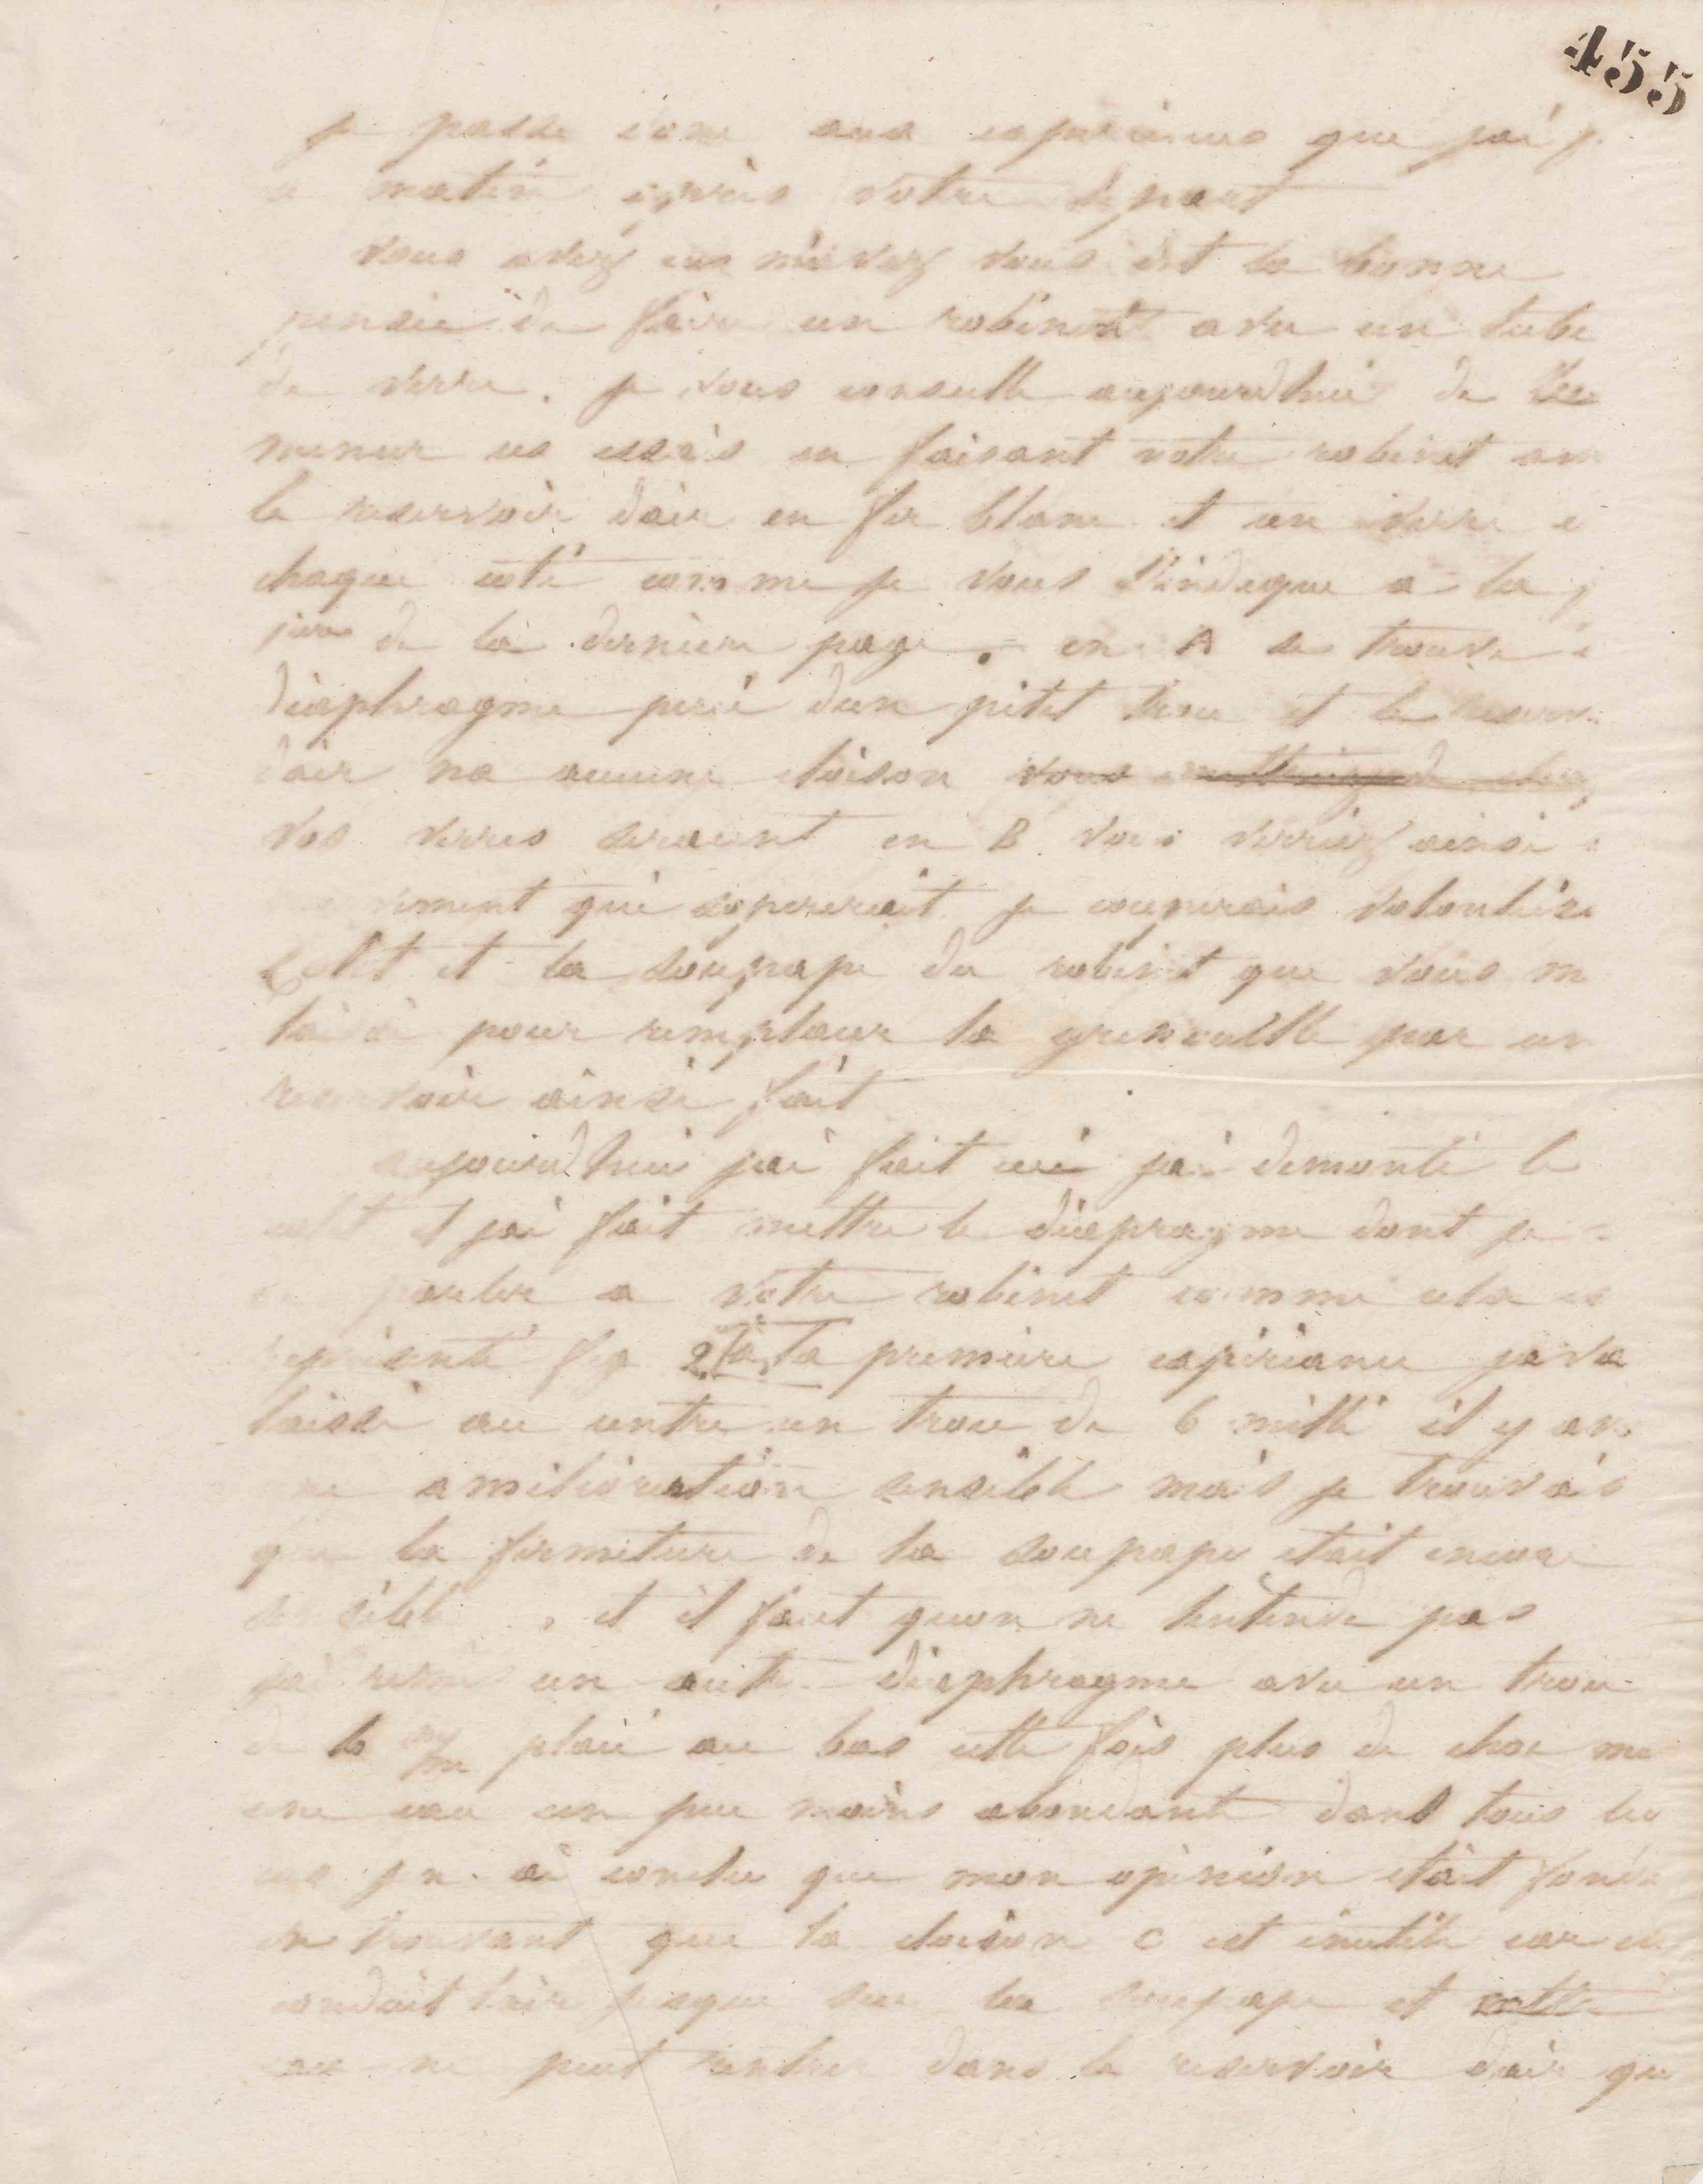 455
je passe donc aux experiences que j'ai f
ce matin après votre depart
vous avez eu m'avez vous dit la bonne
pensée de faire un robinet avec un tube
de verre. je vous conseille aujourdhui de
ces essais en faisant votre robinet avec
le reservoir dair en fer blanc et un verre
chaque coté comme je vous l'indique a la
de la derniere page. en A se trouve
diaphragme percé dun pétit trou et le reserv
dair na aucune cloison vous
vos verres seraient en B vous verriez ainsi
qui sopererait je couperais volontiers
Colet et la soupape du robinet que vous m
laissé pour remplacer la grenouille par un
reservoir ainsi fait
aujourdhui jai fait ceci jai demonté le
colet et jai fait mettre le diapragme dont je
parler a votre robinet comme cela es
représenté fig 2 a la premiere expérience java
laissé au centre un trou de 6 milli il y av
une amélioration sensible mais je trouvais
que la fermeture de la soupape etait encore
sensible, et il faut quon ne lentende pas
jai remis un autre diaphragme avec un trou
de 10 m/m placé au bas cette fois plus de choc ma
une eau un peu moins abondante dans tous les
cas jen ai conclu que mon opinion etait fondé
en trouvant que la cloison C est inutile car el
conduit lair jusque sur la soupape et
eau ne peut rentrer dans le reservoir dair que